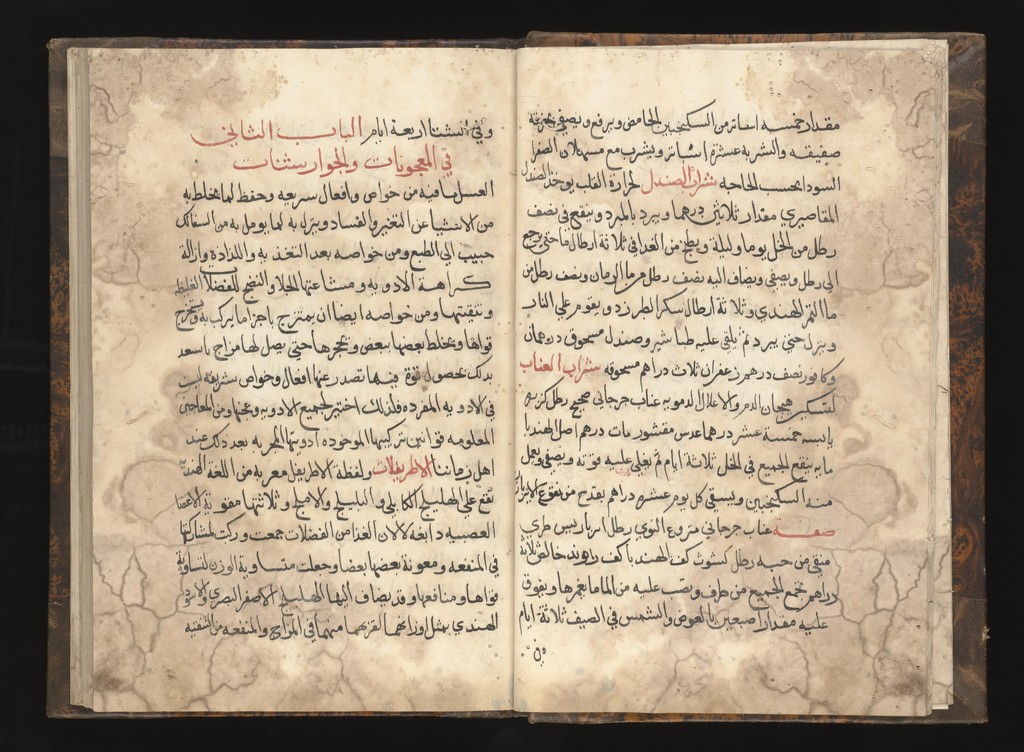 مقدار خمسه اساتر من السكنجبين الحامض ويرفع ويصفى بخرقة
صفيقه والشربه عشرة اساتر ويشرب مع مسهلات الصفرا
السودا بحسب الحاجه شراب الصندل لحرارة القلب يوخذ الصندل
المقاصيري مقدار ثلاثين درهما ويبرد بالمبرد وينقع في نصف
رطل من الخل يوما وليلة ويطبخ من الغد في ثلاثة ارطال ما حتى يرجع
الى رطل ويصفى ويضاف اليه نصف رطل من ما الرمان ونصف رطل من
ما التمر الهندي وثلاثة ارطال سكر الطبرزد ويقوم على النار
وينزل حتى يبرد ثم يلقى عليه طباشير وصندل مسحوق درهمان
وكافور نصف درهم زعفران ثلاث دراهم مسحوقه شراب العناب
لتسكين هيجان الدم والاعلال الدمويه عناب جرجاني صحيح رطل كزبره
يابسه خمسة عشر درهما عدس مقشور مات درهم اصل الهندبا
مايه ينقع الجميع في الخل ثلاثة ايام ثم يغلى عليه فوته ويصفى ويعمل
منه السكنجبين ويسقى كل يوم عشره دراهم بقدح من نقوع الامبرباريس
صفه عناب جرجاني منزوع النوى رطل انبرباريس طري
منقى من حبه رطل كشوث كف الهندبا كف راوند خالص ثلاثة
دراهم تجمع الجميع في ظرف ويصب عليه من الما ما يغمرها ويفوق
عليه مقدار اصبعين بالعوض والشمس في الصيف ثلاثة ايام
وفي
وفي الشتا اربعة ايام الباب الثاني
في المعجونات والجوارشنات
العسل لما فيه من خواص وافعال سريعه وحفظ لما يخلط به
من الاشيا عن التغير والفساد وينزل به لما يومل به من المسالك
حبيب الى الطبع ومن خواصه بعد التغذيه واللذاذة وازالة
كراهة الادويه ومشاعتها الجلا والنضج للفضلات الغليظه
وتنقيتها ومن خواصه ايضا ان يمتزج باجزا ما يركب به ويستخرج
قواها ويخلط بعضها ببعض ويخمرها حتى يصل لها مزاج باسعد
بذلك تحصول قوة فيها تصدر عنها افعال وخواص شريفه ليست
في الادويه المفرده فلذلك اختير لجميع الادويه وعجنها ومن المعاجين
المعلومه قوانين تركيبها الموجوده ادويتها المجربه بعد ذلك عند
اهل زماننا الاطريفلات ولفظة الاطريفل معربه من اللغة الهنديه
تقع على الهليلج الكابلي والبليلج والاملج وثلاثتها مقوية الاعضا
العصبيه دابغة لالات الغذا من الفضلات جمعت وركبت لمشاركتها
في المنفعه ومعونة بعضها بعضا وجعلت متساوية الوزن لتساوية
قواها ومنافعها وقد يضاف اليها الهليلج الاصفر البصري والاسود
الهندي بمثل اوزانهما لقربهما منهما في المزاج والمنفعه من التنقيه